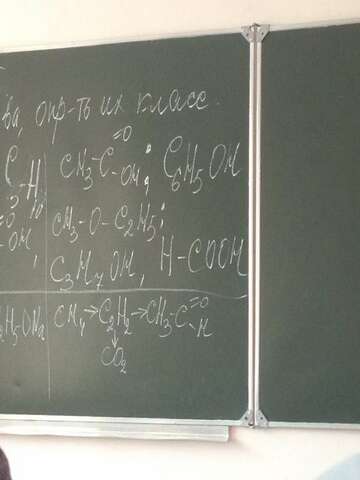 ва, опр-ть их класс.
CH3-C=O-OH; C6H5OH
CH3-O-C2H5;
C3H7OH, H-COOH
CH4→C2H2→CH3-C=O-H
↓
CO2